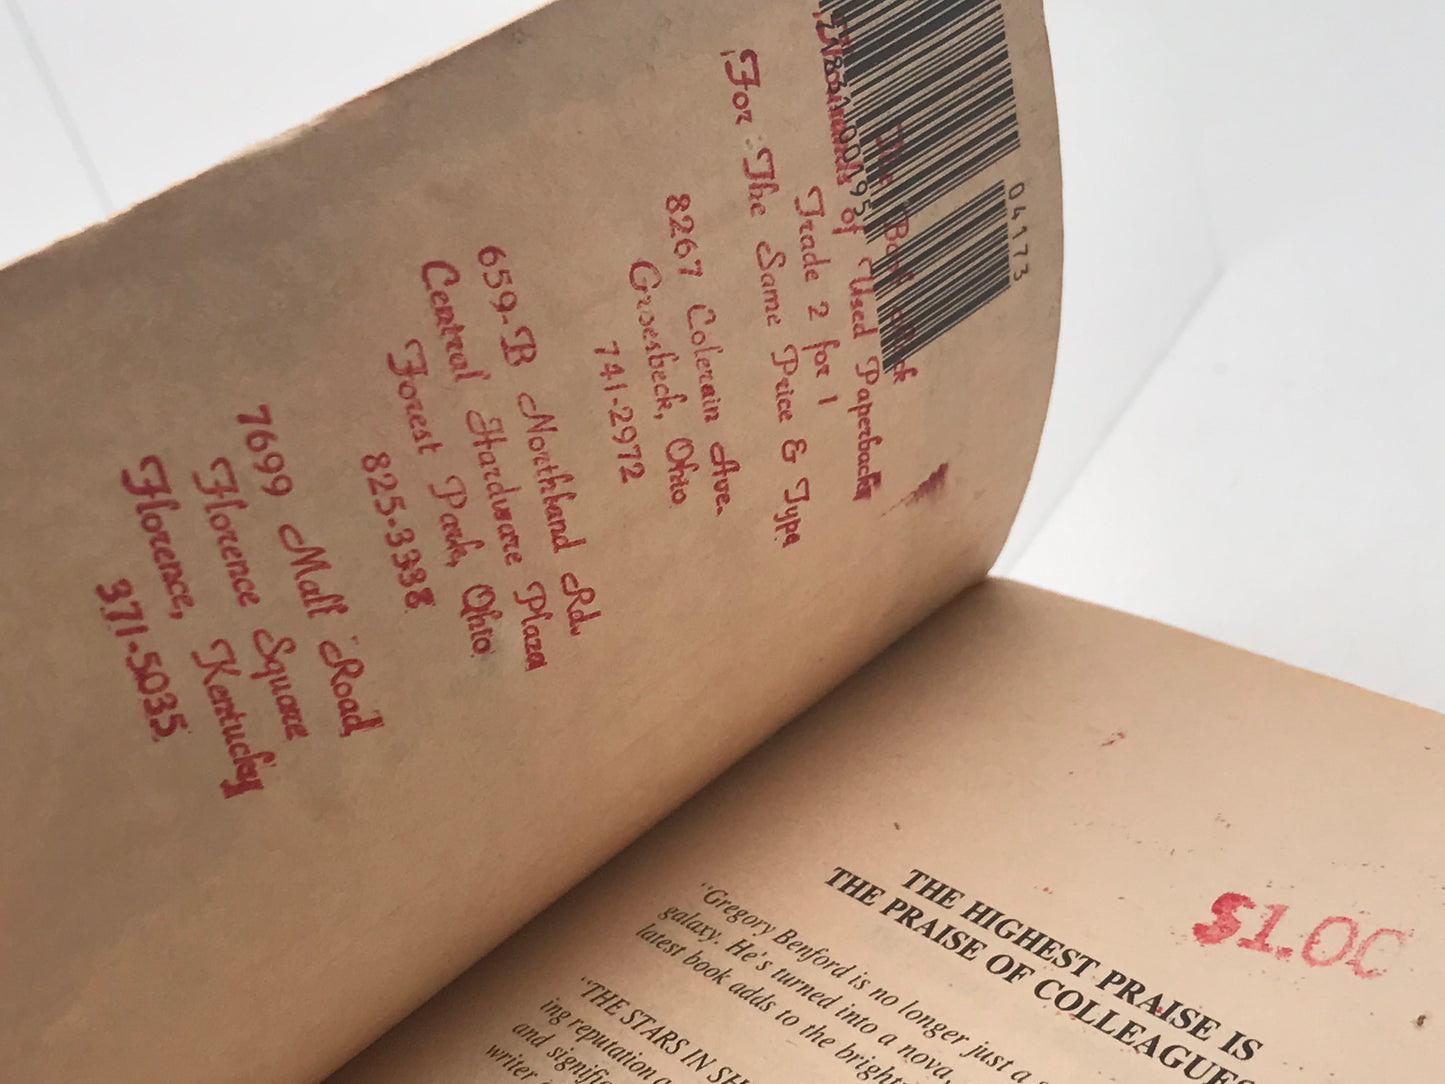 The Book Rack
Thousands of Used Paperbacks
Trade 2 for 1
For The Same Price & Type
8267 Colerain Ave.
Groesbeck, Ohio
741-2972
659-B Northland Rd.
Central Hardware Plaza
Forest Park, Ohio
825-3338
7699 Mall Road
Florence Square
Florence, Kentucky
371-5035
04173
$1.00
THE HIGHEST PRAISE IS
THE PRAISE OF COLLEAGUES
"Gregory Benford is no longer just a
galaxy. He's turned into a nova,
latest book adds to the bright
"THE STARS IN SH
ing reputation
and signific
writer